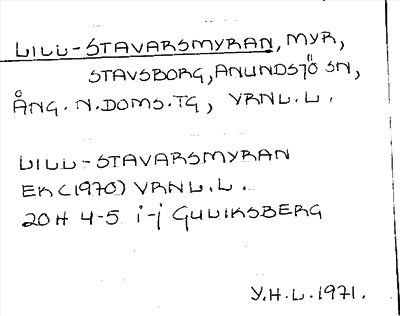 LILL-STAVARSMYRAN, MYR,
STAVSBORG, ANUNDSJÖ SN,
ÅNG. N. DOMS. TG, VRNL.L.
LILL-STAVARSMYRAN
EK (1970) VRNL.L.
20H 4-5 i-j GULIKSBERG
Y.H.L. 1971.